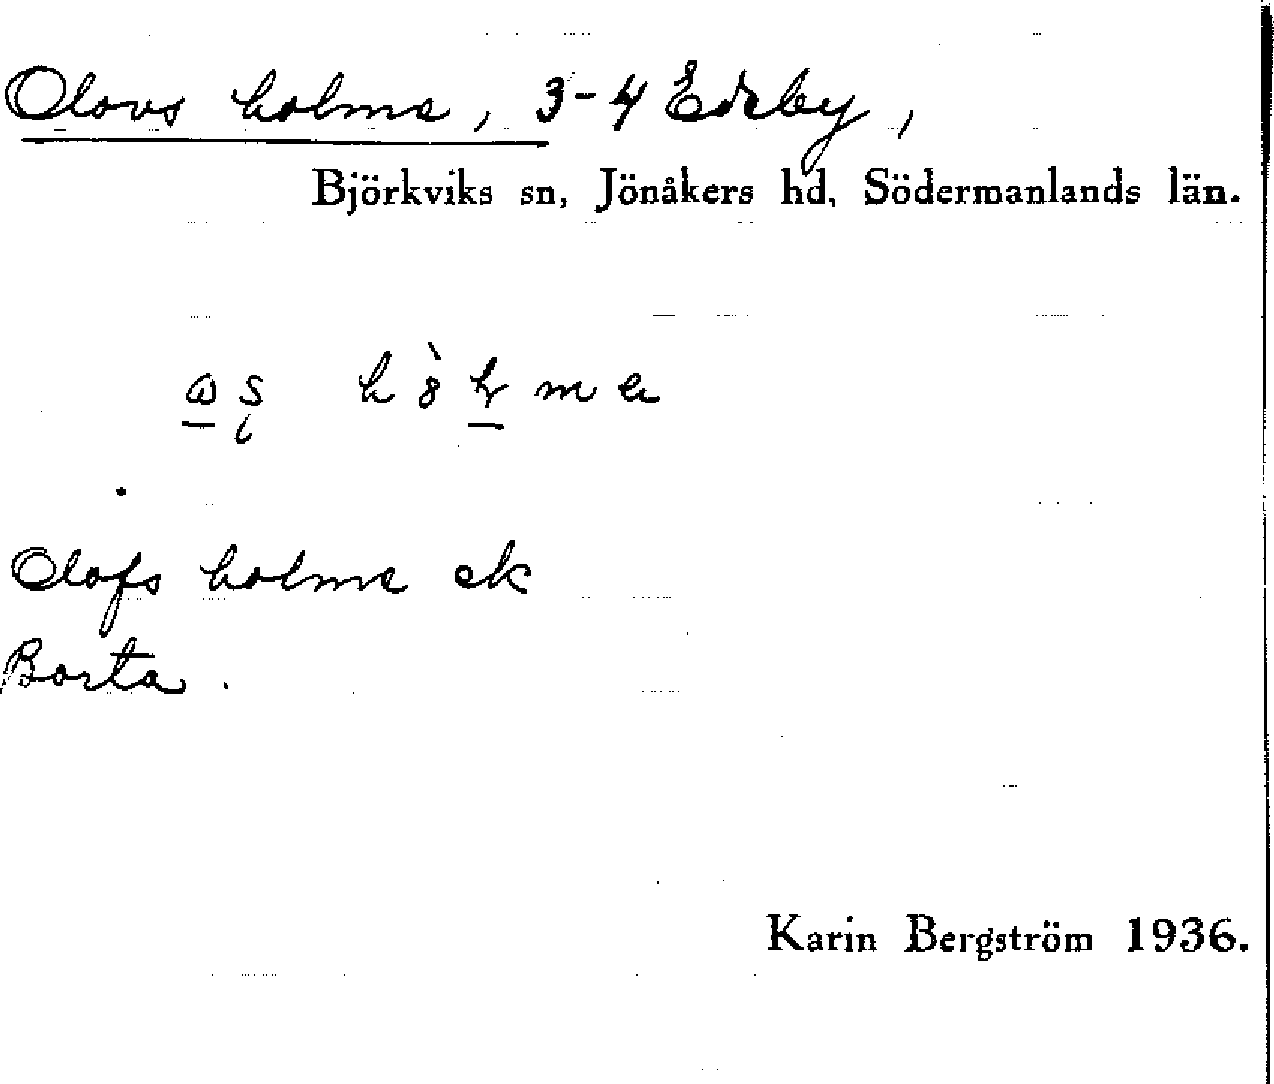 Olovs holme, 3-4 Edeby,
Björkviks sn, Jönåkers hd, Södermanlands län.
Olofs holme ek
Borta.
Karin Bergström 1936.